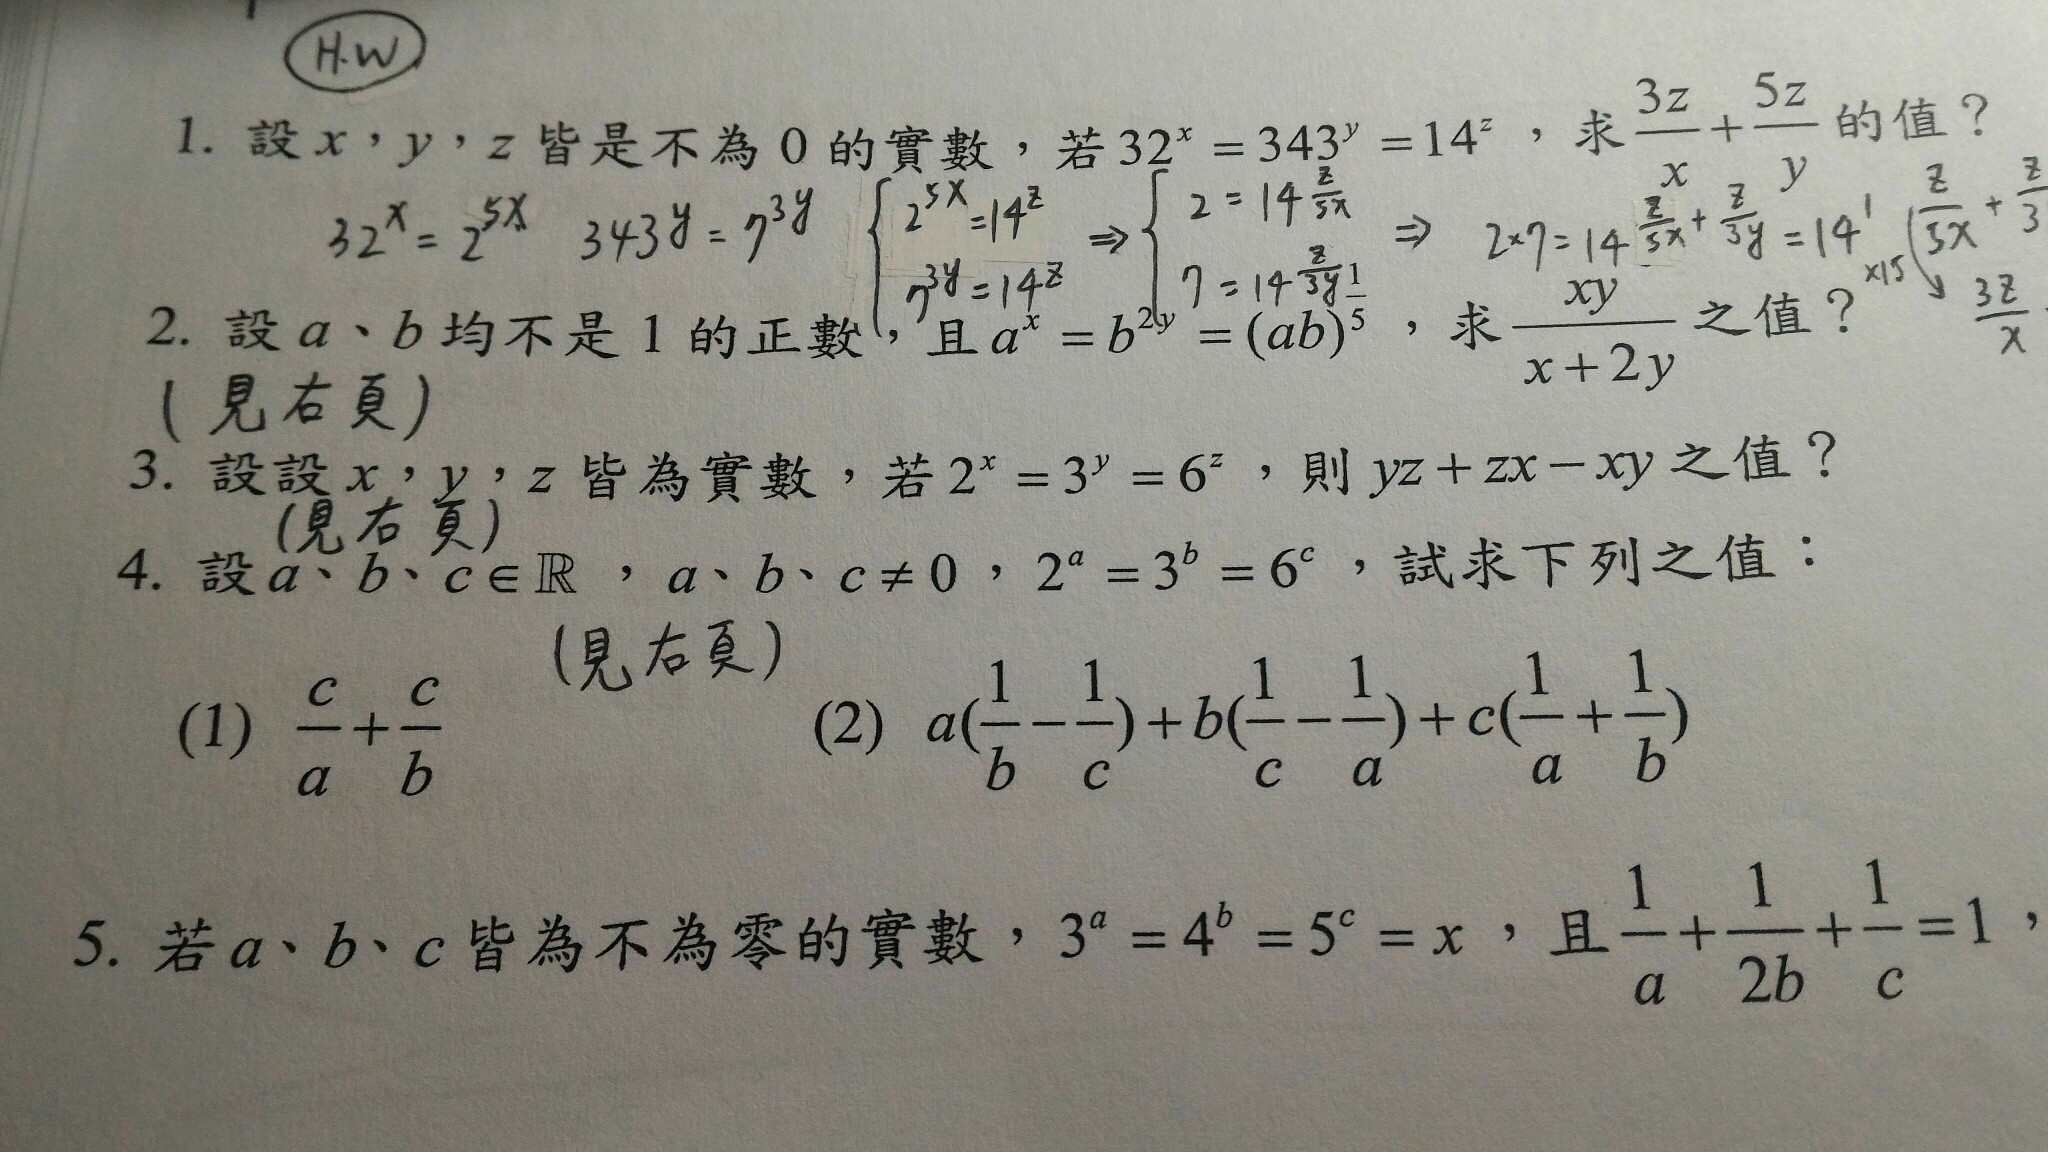 H.W
1. 設 x，y，z 皆是不為 0 的實數，若 32^x = 343^y = 14^z，求 3z/x + 5z/y 的值？
32^x = 2^{5x}　343^y = 7^{3y}　{ 2^{5x} = 14^z　7^{3y} = 14^z　⇒ { 2 = 14^{z/5x}　7 = 14^{z/3y}　⇒ 2×7 = 14^{z/5x + z/3y} = 14^1　( z/5x + z/3
×15 ↘ 3z/x
2. 設 a、b 均不是 1 的正數，且 a^x = b^{2y} = (ab)^{1/5}，求 xy/(x+2y) 之值？
(見右頁)
3. 設設 x，y，z 皆為實數，若 2^x = 3^y = 6^z，則 yz + zx − xy 之值？
(見右頁)
4. 設 a、b、c ∈ ℝ，a、b、c ≠ 0，2^a = 3^b = 6^c，試求下列之值：
(見右頁)
(1) c/a + c/b　(2) a(1/b − 1/c) + b(1/c − 1/a) + c(1/a + 1/b)
5. 若 a、b、c 皆為不為零的實數，3^a = 4^b = 5^c = x，且 1/a + 1/2b + 1/c = 1，